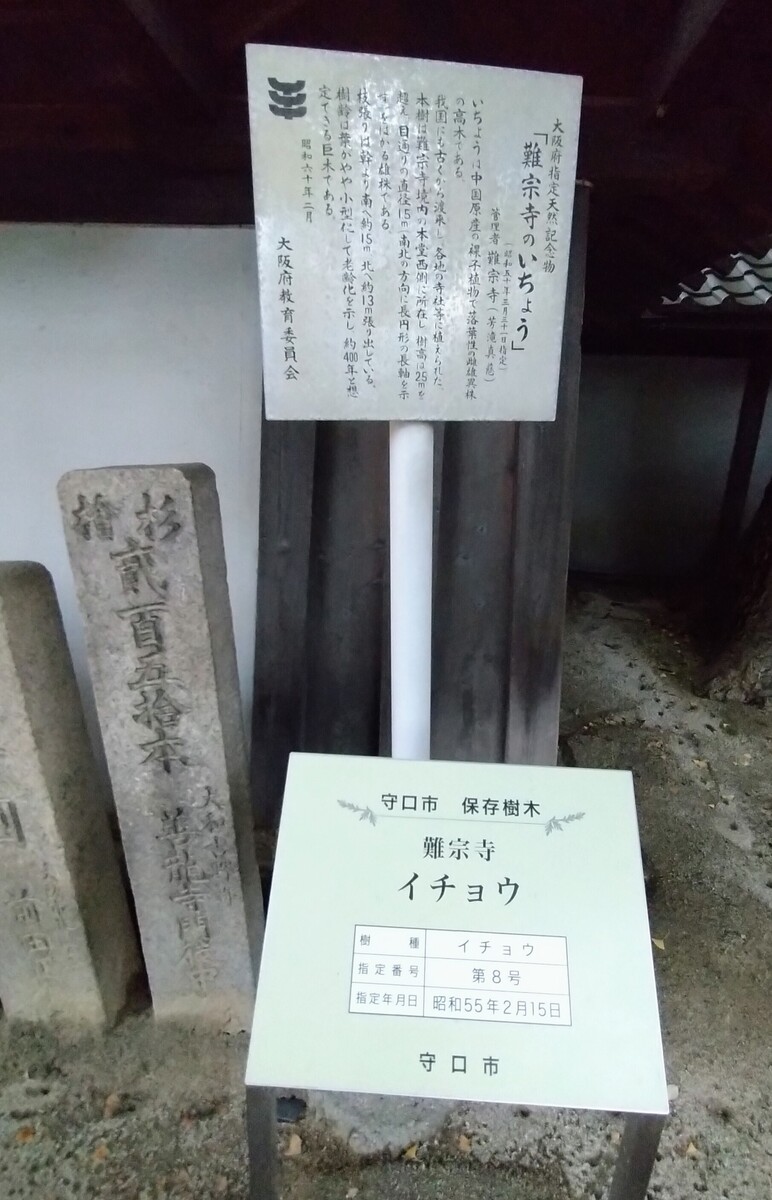 大阪府指定天然記念物
「難宗寺のいちょう」
(昭和五十年三月三十一日指定)
管理者 難宗寺(芳滝真慈)
いちょうは中国原産の裸子植物で落葉性の雌雄異株
の高木である。
我国にも古くから渡来し、各地の寺社等に植えられた。
本樹は難宗寺境内の本堂西側に所在し、樹高は25mを
超え、目通りの直径1.5m、南北の方向に長円形の長軸を示
す をはかる雄株である。
枝張りは幹より南へ約15m、北へ約13m張り出している。
樹齢は葉がやや小型にして老齢化を示し、約400年と想
定できる巨木である。
昭和六十年二月
大阪府教育委員会
杉
檜
貳百五拾本
善龍寺門徒中
前田
守口市 保存樹木
難宗寺
イチョウ
樹種 イチョウ
指定番号 第8号
指定年月日 昭和55年2月15日
守口市